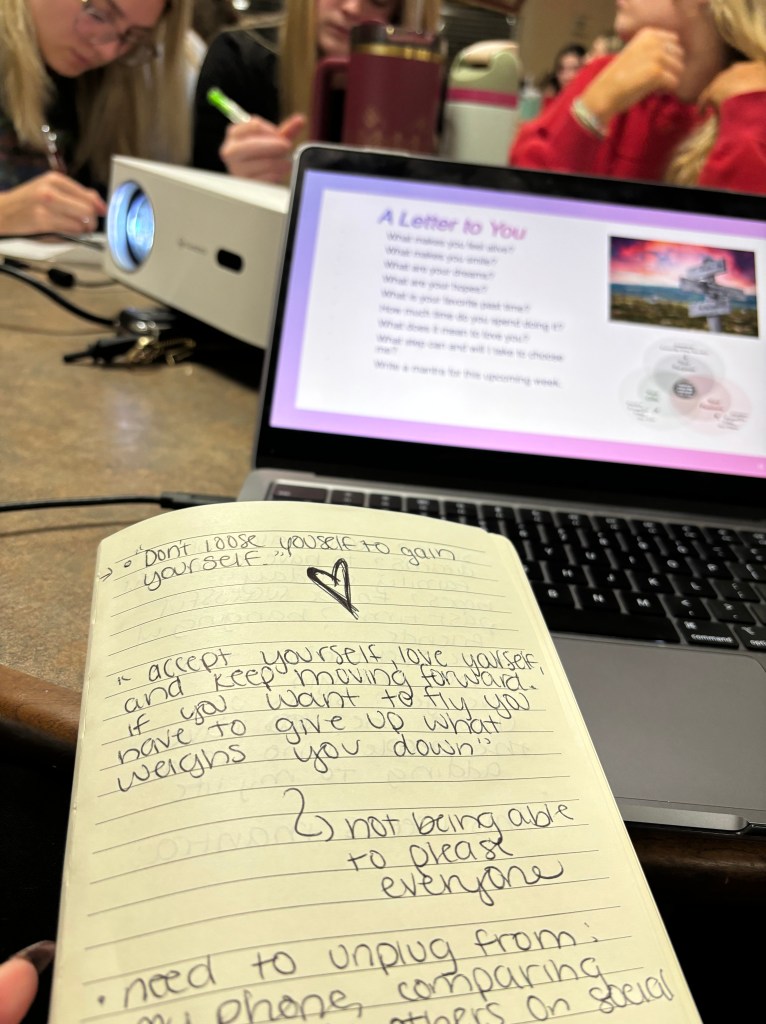 A Letter to You
What makes you feel alive?
What makes you smile?
What are your dreams?
What are your hopes?
What is your favorite past time?
How much time do you spend doing it?
What does it mean to love you?
What step can and will I take to choose
me?
Write a mantra for this upcoming week.
"Don't loose youself to gain
yourself."
" accept yourself, love yourself,
and keep moving forward.
if you want to fly you
have to give up what
weighs you down"
not being able
to please
everyone
• need to unplug from:
my phone, comparing
others on social
command